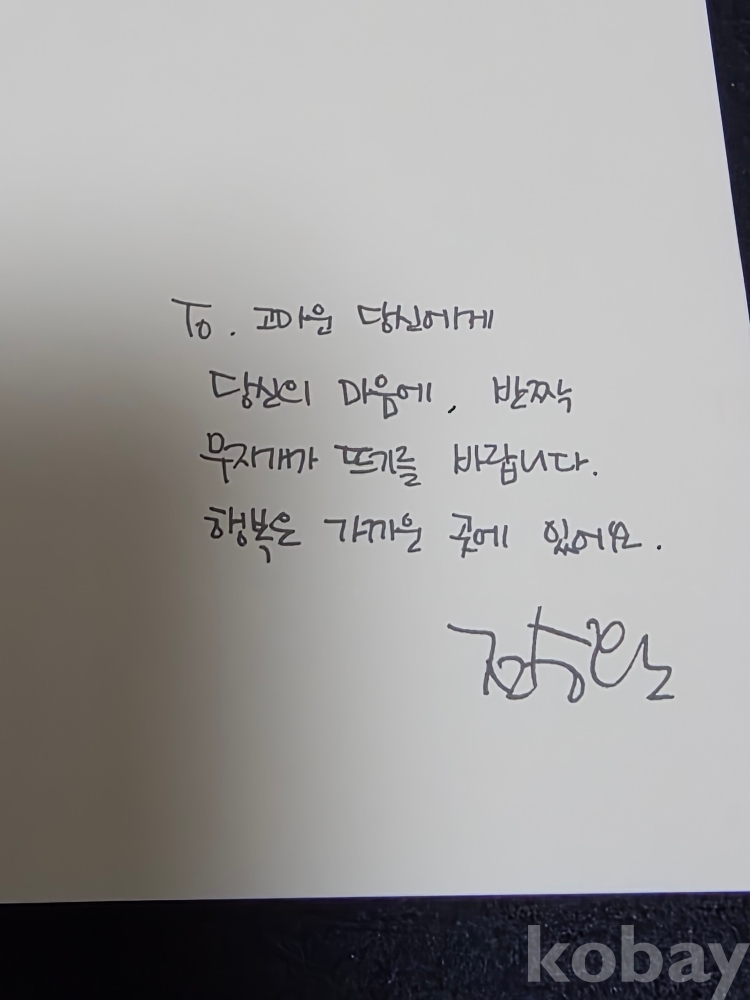 To. 고마운 당신에게
당신의 마음에, 반짝
무지개가 뜨기를 바랍니다.
행복은 가까운 곳에 있어요.
kobay